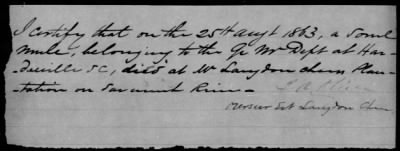 I certify that on the 25th Augt 1863, a Sorrel
Mule, belonging to the Qr Mr Dept at Har-
-deeville S.C., died at Mr Langdon Cheves Plan-
-tation on Savannah River -
Overseer Est Langdon Cheves